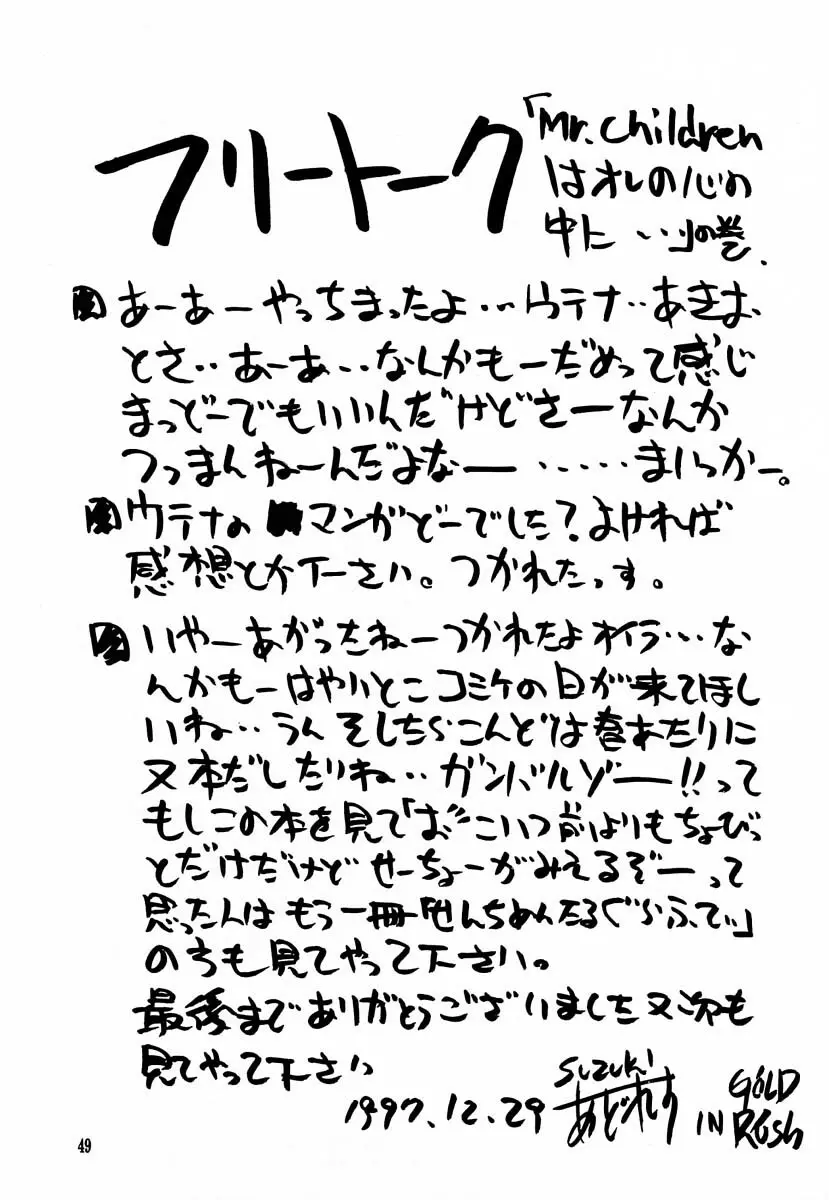 フリートーク
「Mr.Children
はオレの心の
中に・・・」の巻.
あーあーやっちまったよ・・・ウテナ・・あきお
とさ・・あーあ・・・なんかもーだめって感じ
まっどーでもいいんだけどさーなんか
つっまんねーんだよなー・・・・・まいっかー。
ウテナのマンガどーでした？よければ
感想とか下ーさい。つかれたっす。
いやーあがったねーつかれたよオイラ・・・な
んかもーはやいとこコミケの日が来てほし
いね・・うんそしたらこんどは春あたりに
又本だしたいね・・ガンバルゾー!!って
もしこの本を見て「おぉこいつ前よりもちょびっ
とだけだけどせーちょーがみえるぞーって
思った人はもう一冊「せんちめんたるぐらふてぃ」
のちも見てやって下さい。
最後までありがとうございました又次も
見てやって下さい
1997.12.29
SUZUKI
あどれす
GOLD
IN RUSh
49